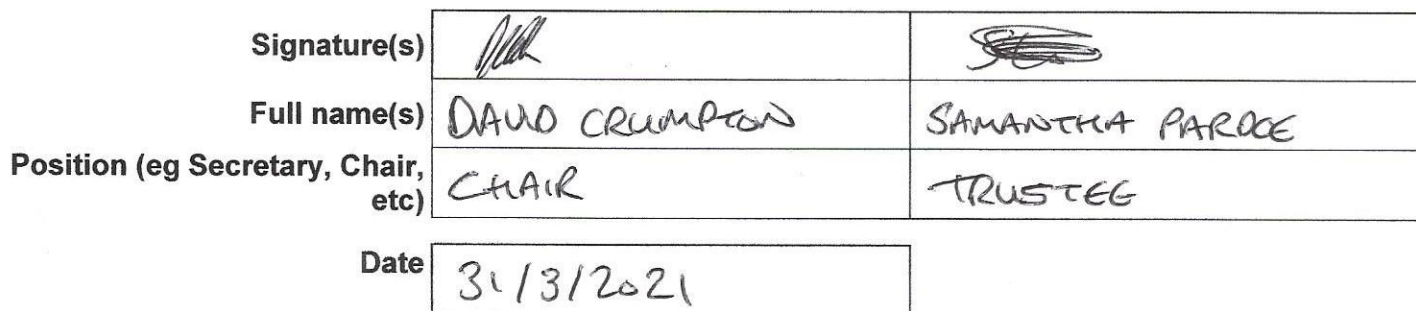 Signature(s)
Full name(s) DAVID CRUMPTON SAMANTHA PARDOE
Position (eg Secretary, Chair, etc) CHAIR TRUSTEE
Date 31/3/2021